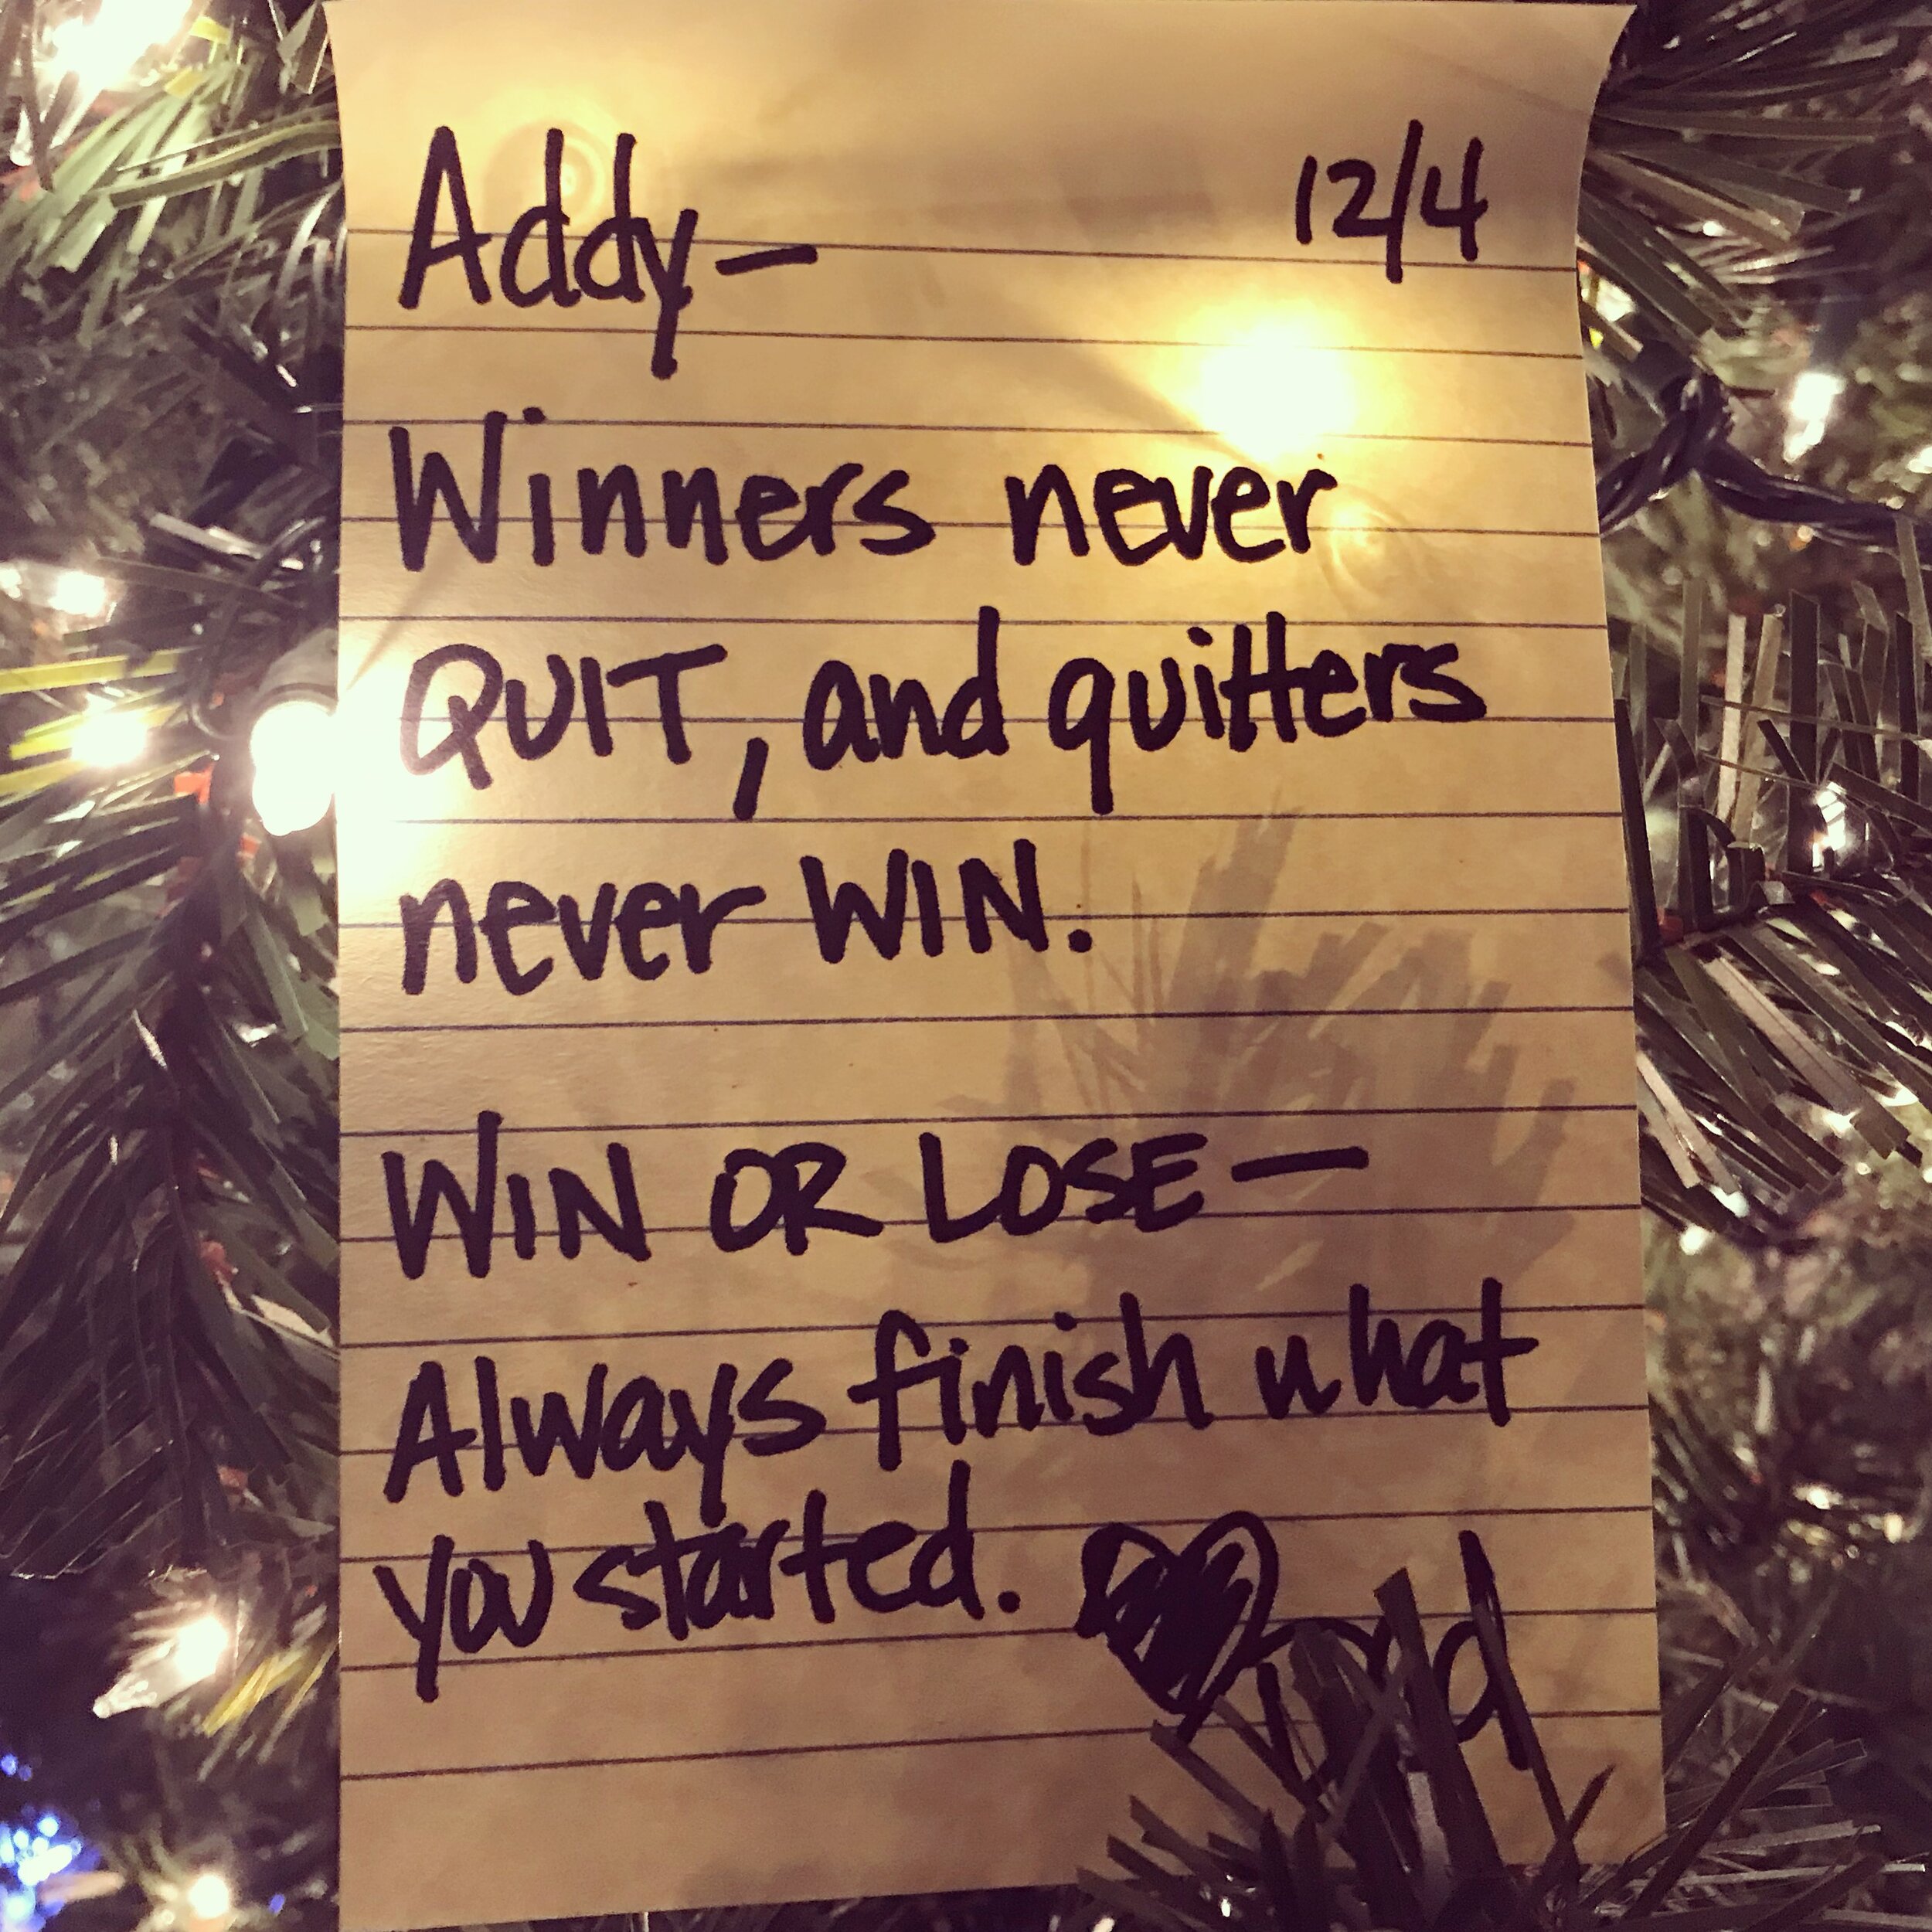 Addy— 12/4
Winners never
QUIT, and quitters
never WIN.
WIN OR LOSE—
Always finish what
you started. ♥ Dad